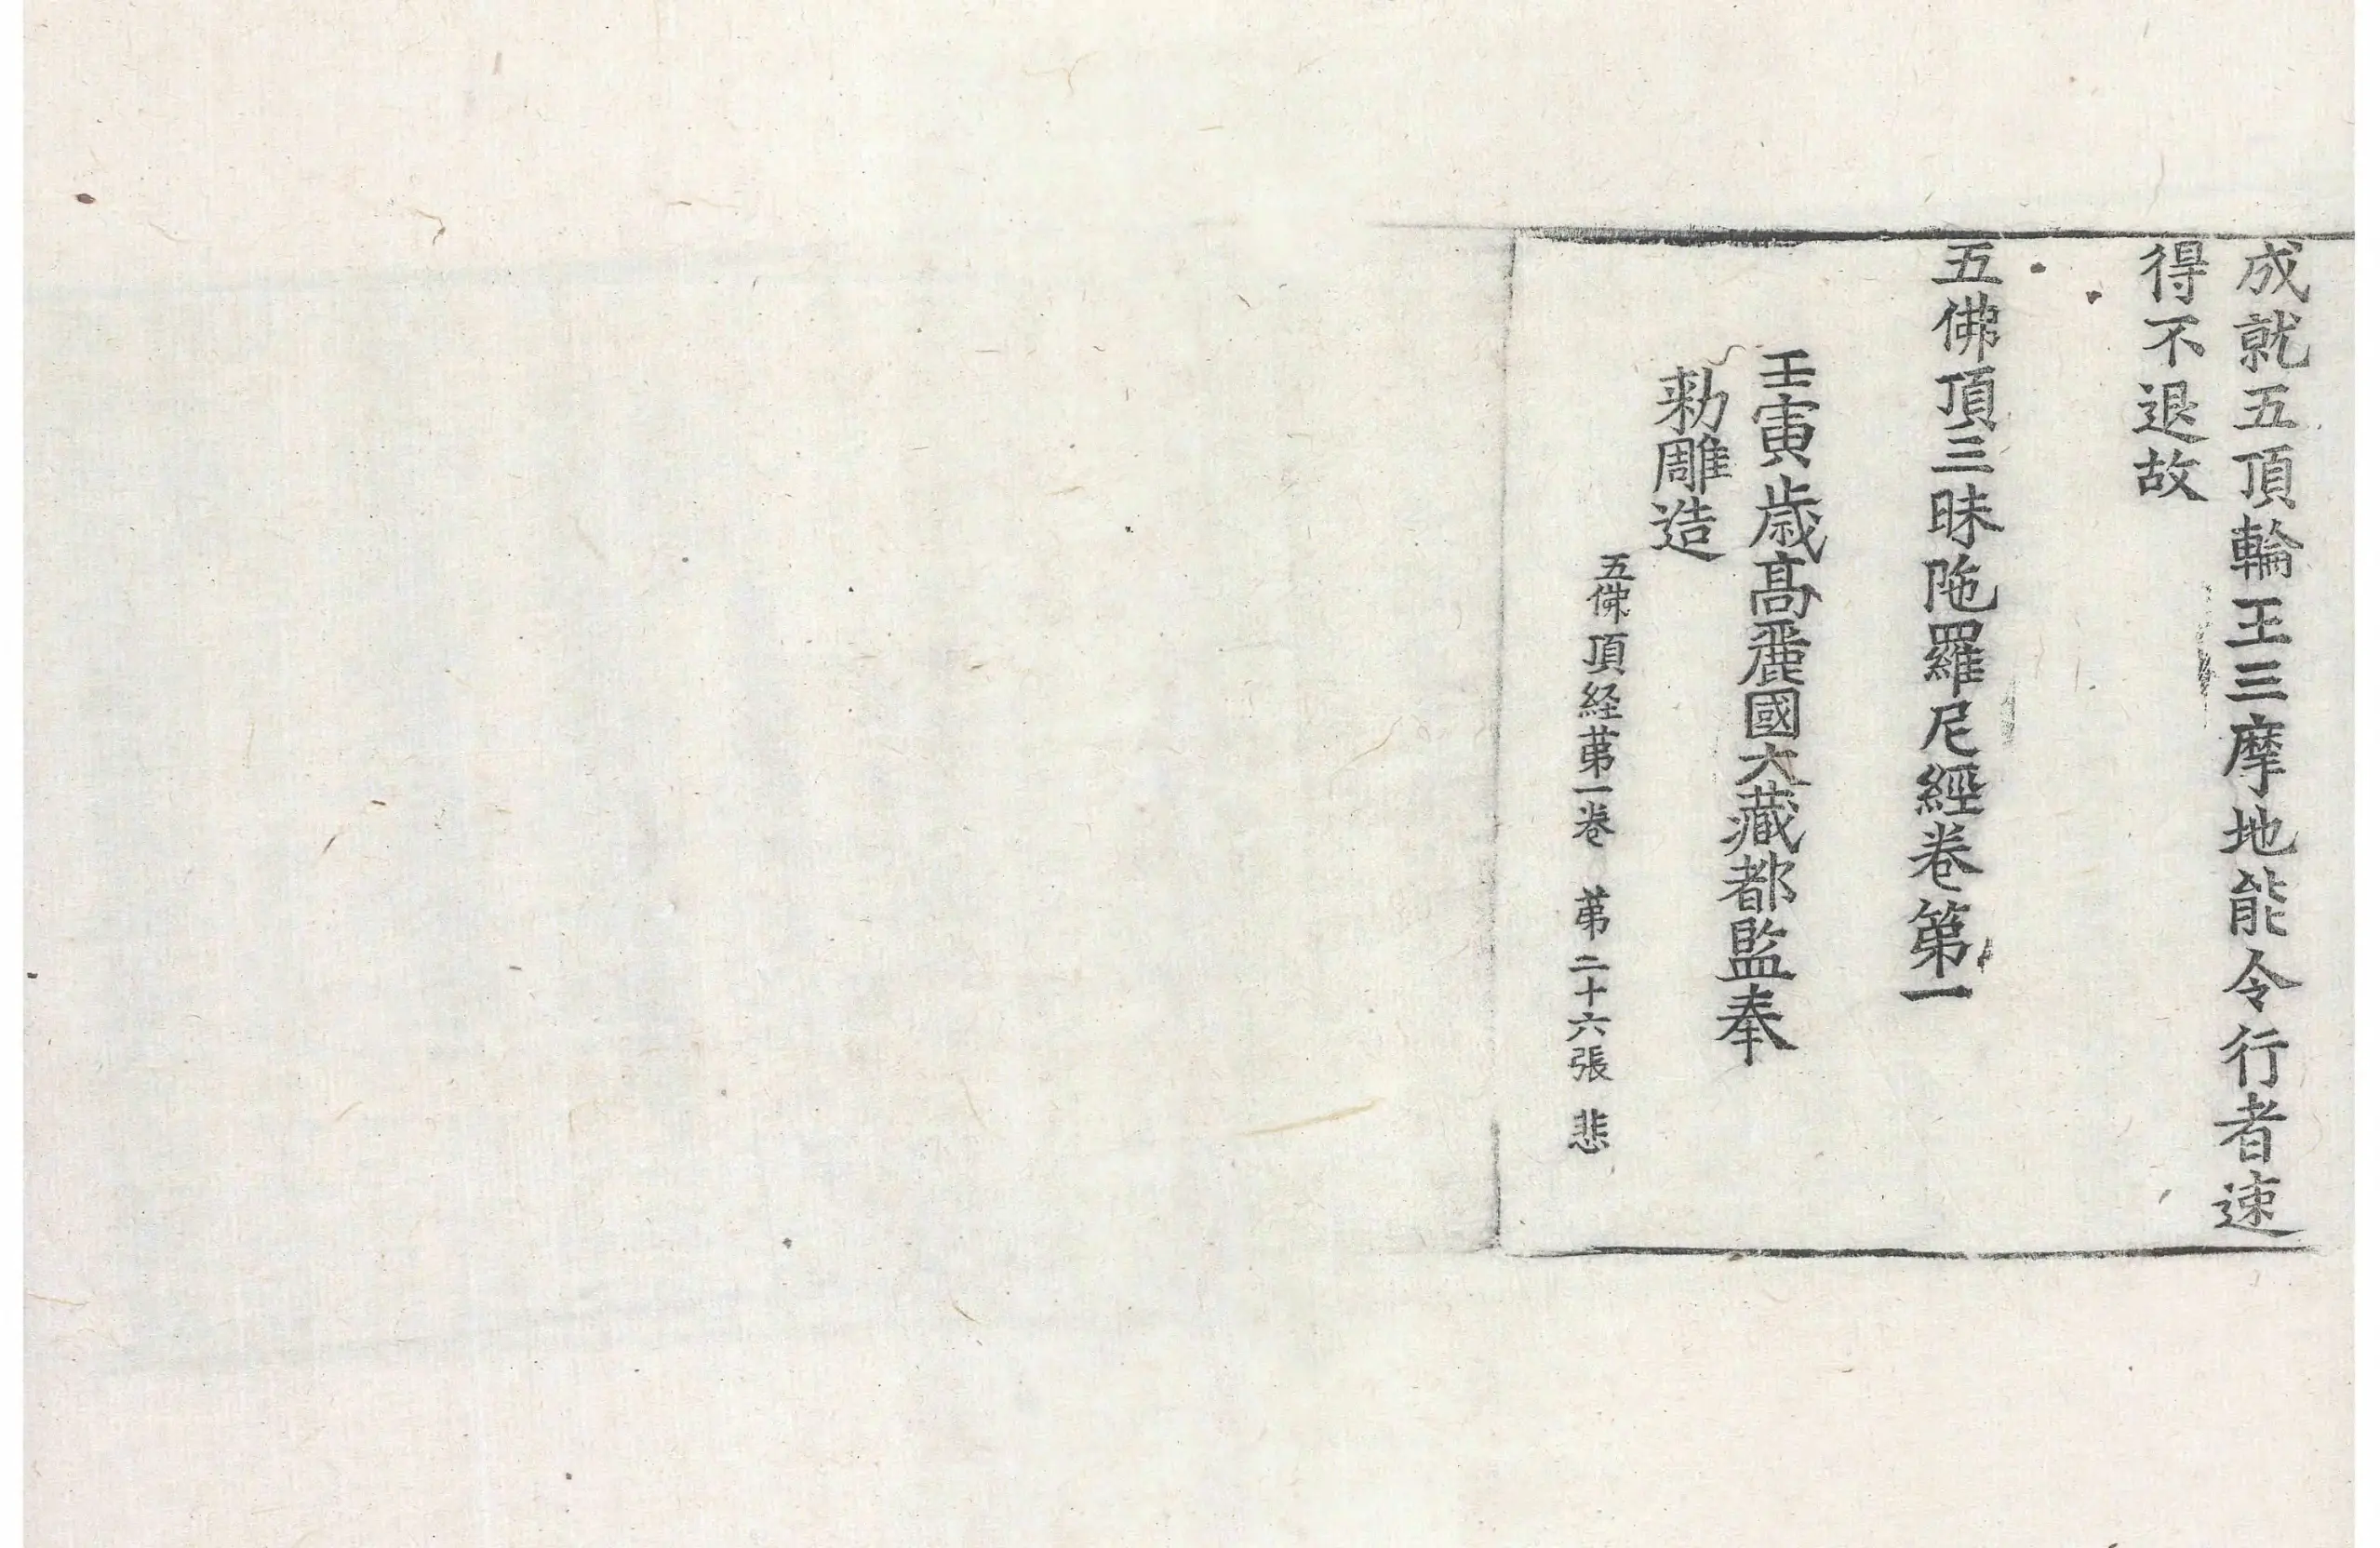 成就五頂輪王三摩地能令行者速
得不退故
五佛頂三昧陁羅尼經卷第一
壬寅歲高麗國大藏都監奉
勑雕造
五佛頂経苐一卷　苐二十六張　悲